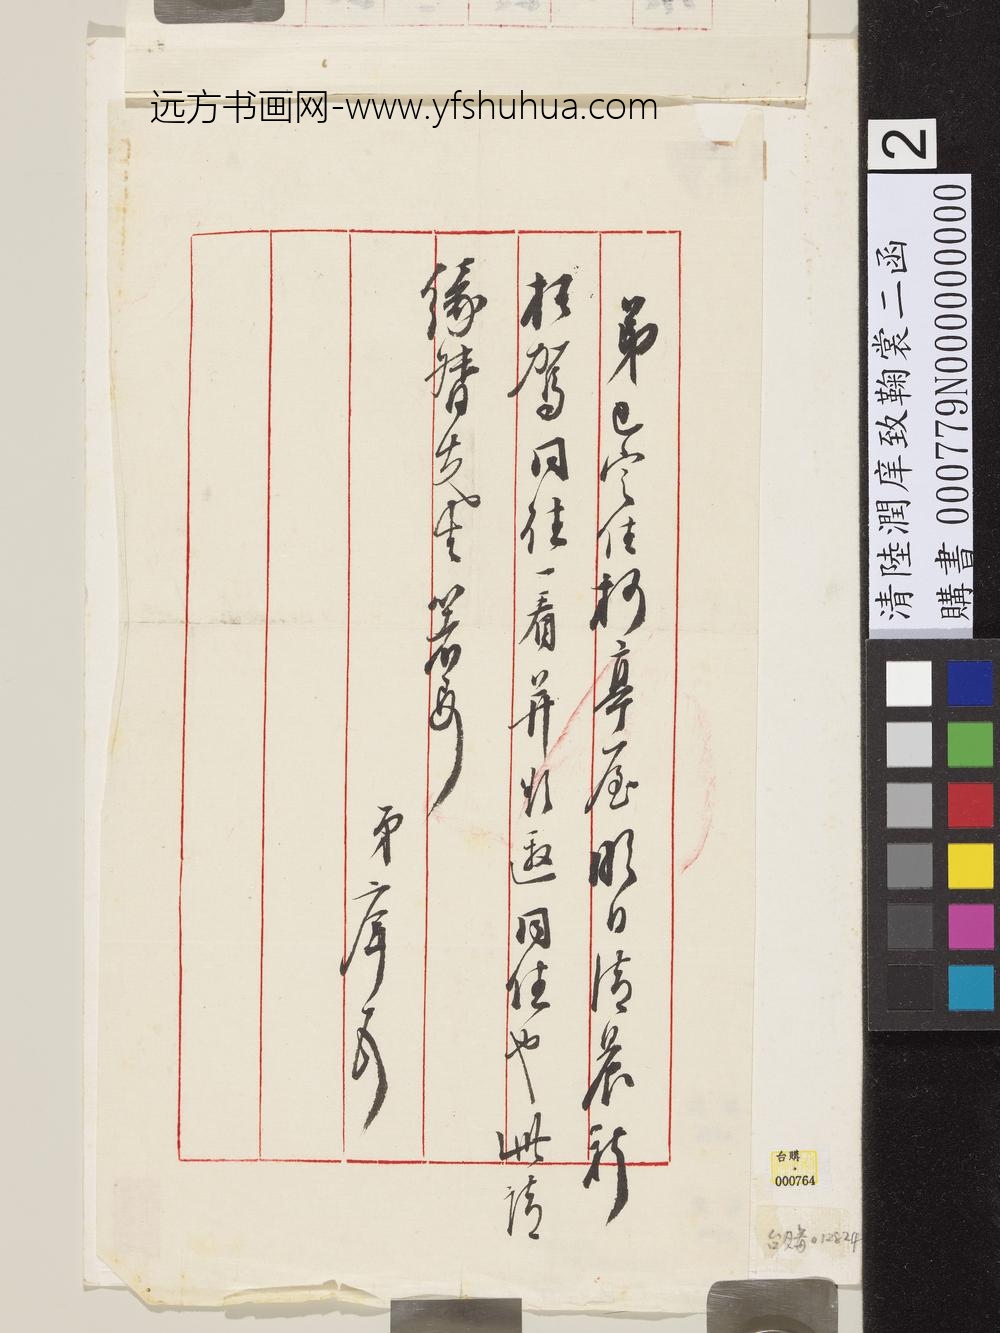 远方书画网-www.yfshuhua.com
弟已定住柯亭屋明日清晨祈
枉驾同往一看并邀同住也此请
缘督先生著安
弟庠頓
2
清陸潤庠致鞠裳二函
購書 000779N000000000
台購
000764
台購012824